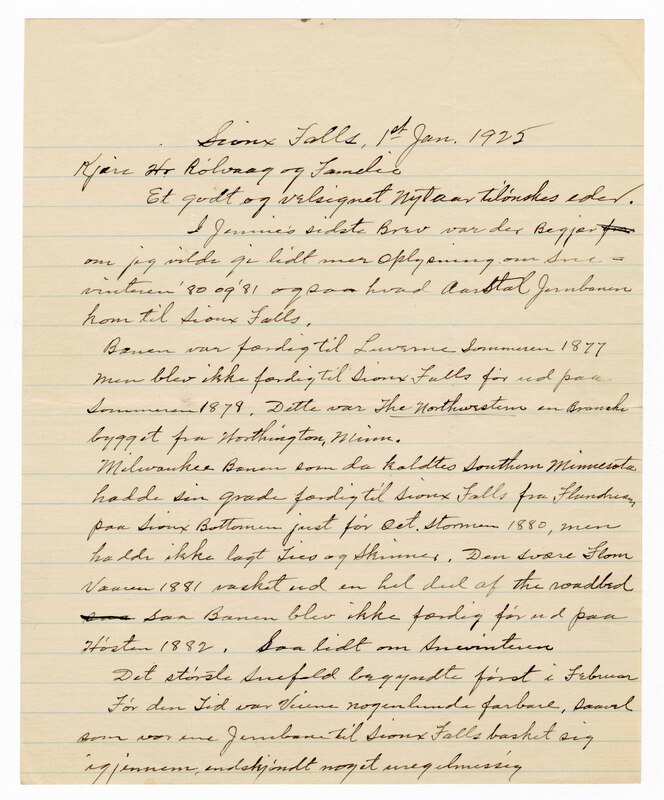 Sioux Falls, 1st Jan. 1925
Kjære Hr Rölvaag og Familie
Et godt og velsignet Nytaar tilönskes eder.
I Jennie's sidste Brev var der Begjær
om jeg vilde gi lidt mer Oplysning om Sne=
vinteren '80 og '81 ogsaa hvad Aarstal Jernbanen
kom til Sioux Falls.
Banen var færdig til Luverne Sommeren 1877
men blev ikke færdig til Sioux Falls för ud paa
Sommeren 1878. Dette var The Northwestern en Branche
bygget fra Worthington, Minn.
Milwaukee Banen som da kaldtes Southern Minnesota
hadde sin grade færdig til Sioux Falls fra Flandreau,
paa Sioux Bottomen just för Oct. stormen 1880, men
hadde ikke lagt Ties og Skinner. Den svære Flom
Vaaren 1881 vasket ud en hel deel af the roadbed
saa Banen blev ikke færdig för ud paa
Hösten 1882. Saa lidt om Snevinteren
Det störste Snefald begyndte först i Februar
För den Tid var Veiene nogenlunde farbare, saavel
som var ene Jernbane til Sioux Falls basket sig
igjennem, endskjöndt noget uregelmessig